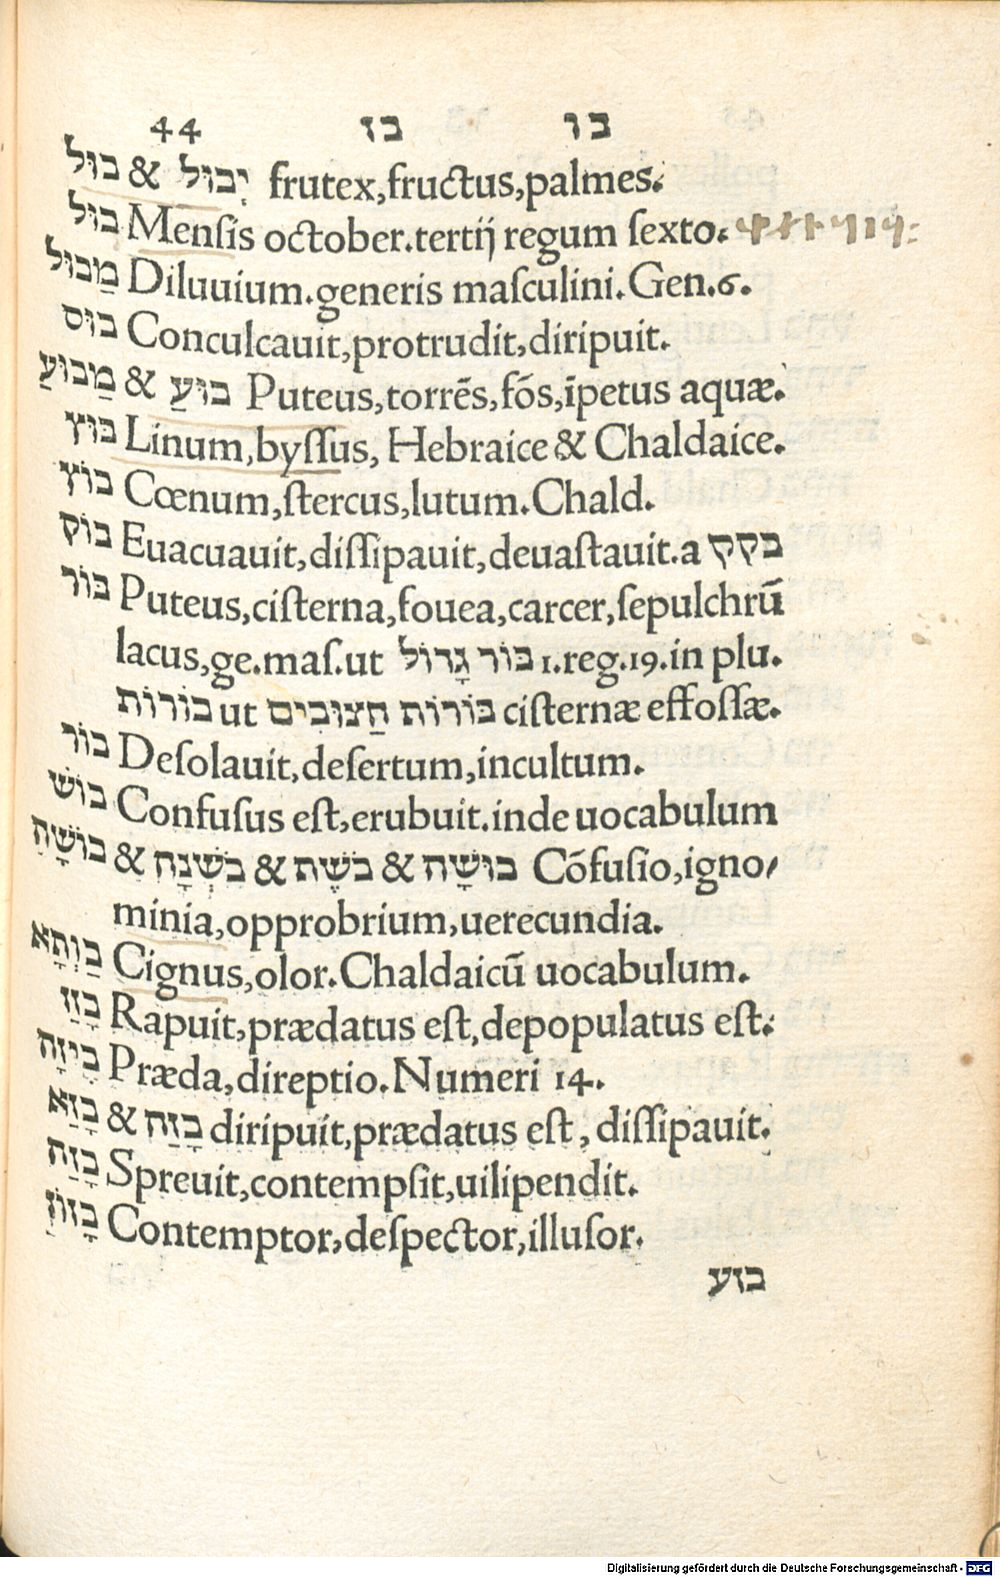 44 בז בו
בוּל & יְבוּל frutex,fructus,palmes.
בוּל Mensis october.tertij regum sexto.
מַבוּל Diluuium.generis masculini.Gen.6.
בוּס Conculcauit,protrudit,diripuit.
מַבוּעַ & בוּעַ Puteus,torrēs,fōs,īpetus aquæ.
בוּץ Linum,byssus, Hebraice & Chaldaice.
בוֹץ Cœnum,stercus,lutum.Chald.
בוֹק Euacuauit,dissipauit,deuastauit.a בקק
בוֹר Puteus,cisterna,fouea,carcer,sepulchrū
lacus,ge.mas.ut בּוֹר גָרוֹל 1.reg.19.in plu.
בוֹרוֹת ut בּוֹרוֹת חַצוּבִים cisternæ effossæ.
בוֹר Desolauit,desertum,incultum.
בוֹשׁ Confusus est,erubuit.inde uocabulum
בוֹשָׁה & בָשְׁנָה & בֹשֶׁת & בוּשָׁה Cōfusio,igno/
minia,opprobrium,uerecundia.
בַוְתָא Cignus,olor.Chaldaicū uocabulum.
בָזַז Rapuit,prædatus est,depopulatus est.
בִיזָה Præda,direptio.Numeri 14.
בָזַא & בָזַה diripuit,prædatus est, dissipauit.
בָזַה Spreuit,contempsit,uilipendit.
בָזוֹז Contemptor,despector,illusor.
בזע
Digitalisierung gefördert durch die Deutsche Forschungsgemeinschaft - DFG